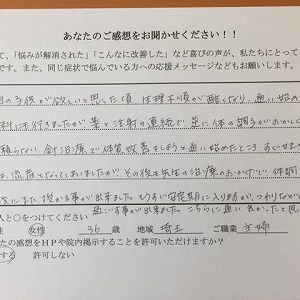 あなたのご感想をお聞かせください！！
て、「悩みが解消された」「こんなに改善した」など喜びの声が、私たちにとって
です。また、同じ症状で悩んでいる方への応援メッセージなどもお願いします。
の子供が欲しいと思した頃 生理不順が酷くなり、通い始め
科に行きましたが薬と注射の連続で逆に体の調子がおかしく
頼らない、針治療で体質改善しようと通い始めたところ すぐなさ
流産となってしまいましたが その後も先生の治療のおかげで 体調
また、授かる事が出来ました。もうすぐ安定期に入りますが、つわりなど
過ごす事が出来ました。こちらに通い良かったと思
人と○をつけてください
性 女性 36 歳 地域 埼玉 ご職業 主婦
たの感想をHPや院内掲示することを許可いただけますか？
する 許可しない